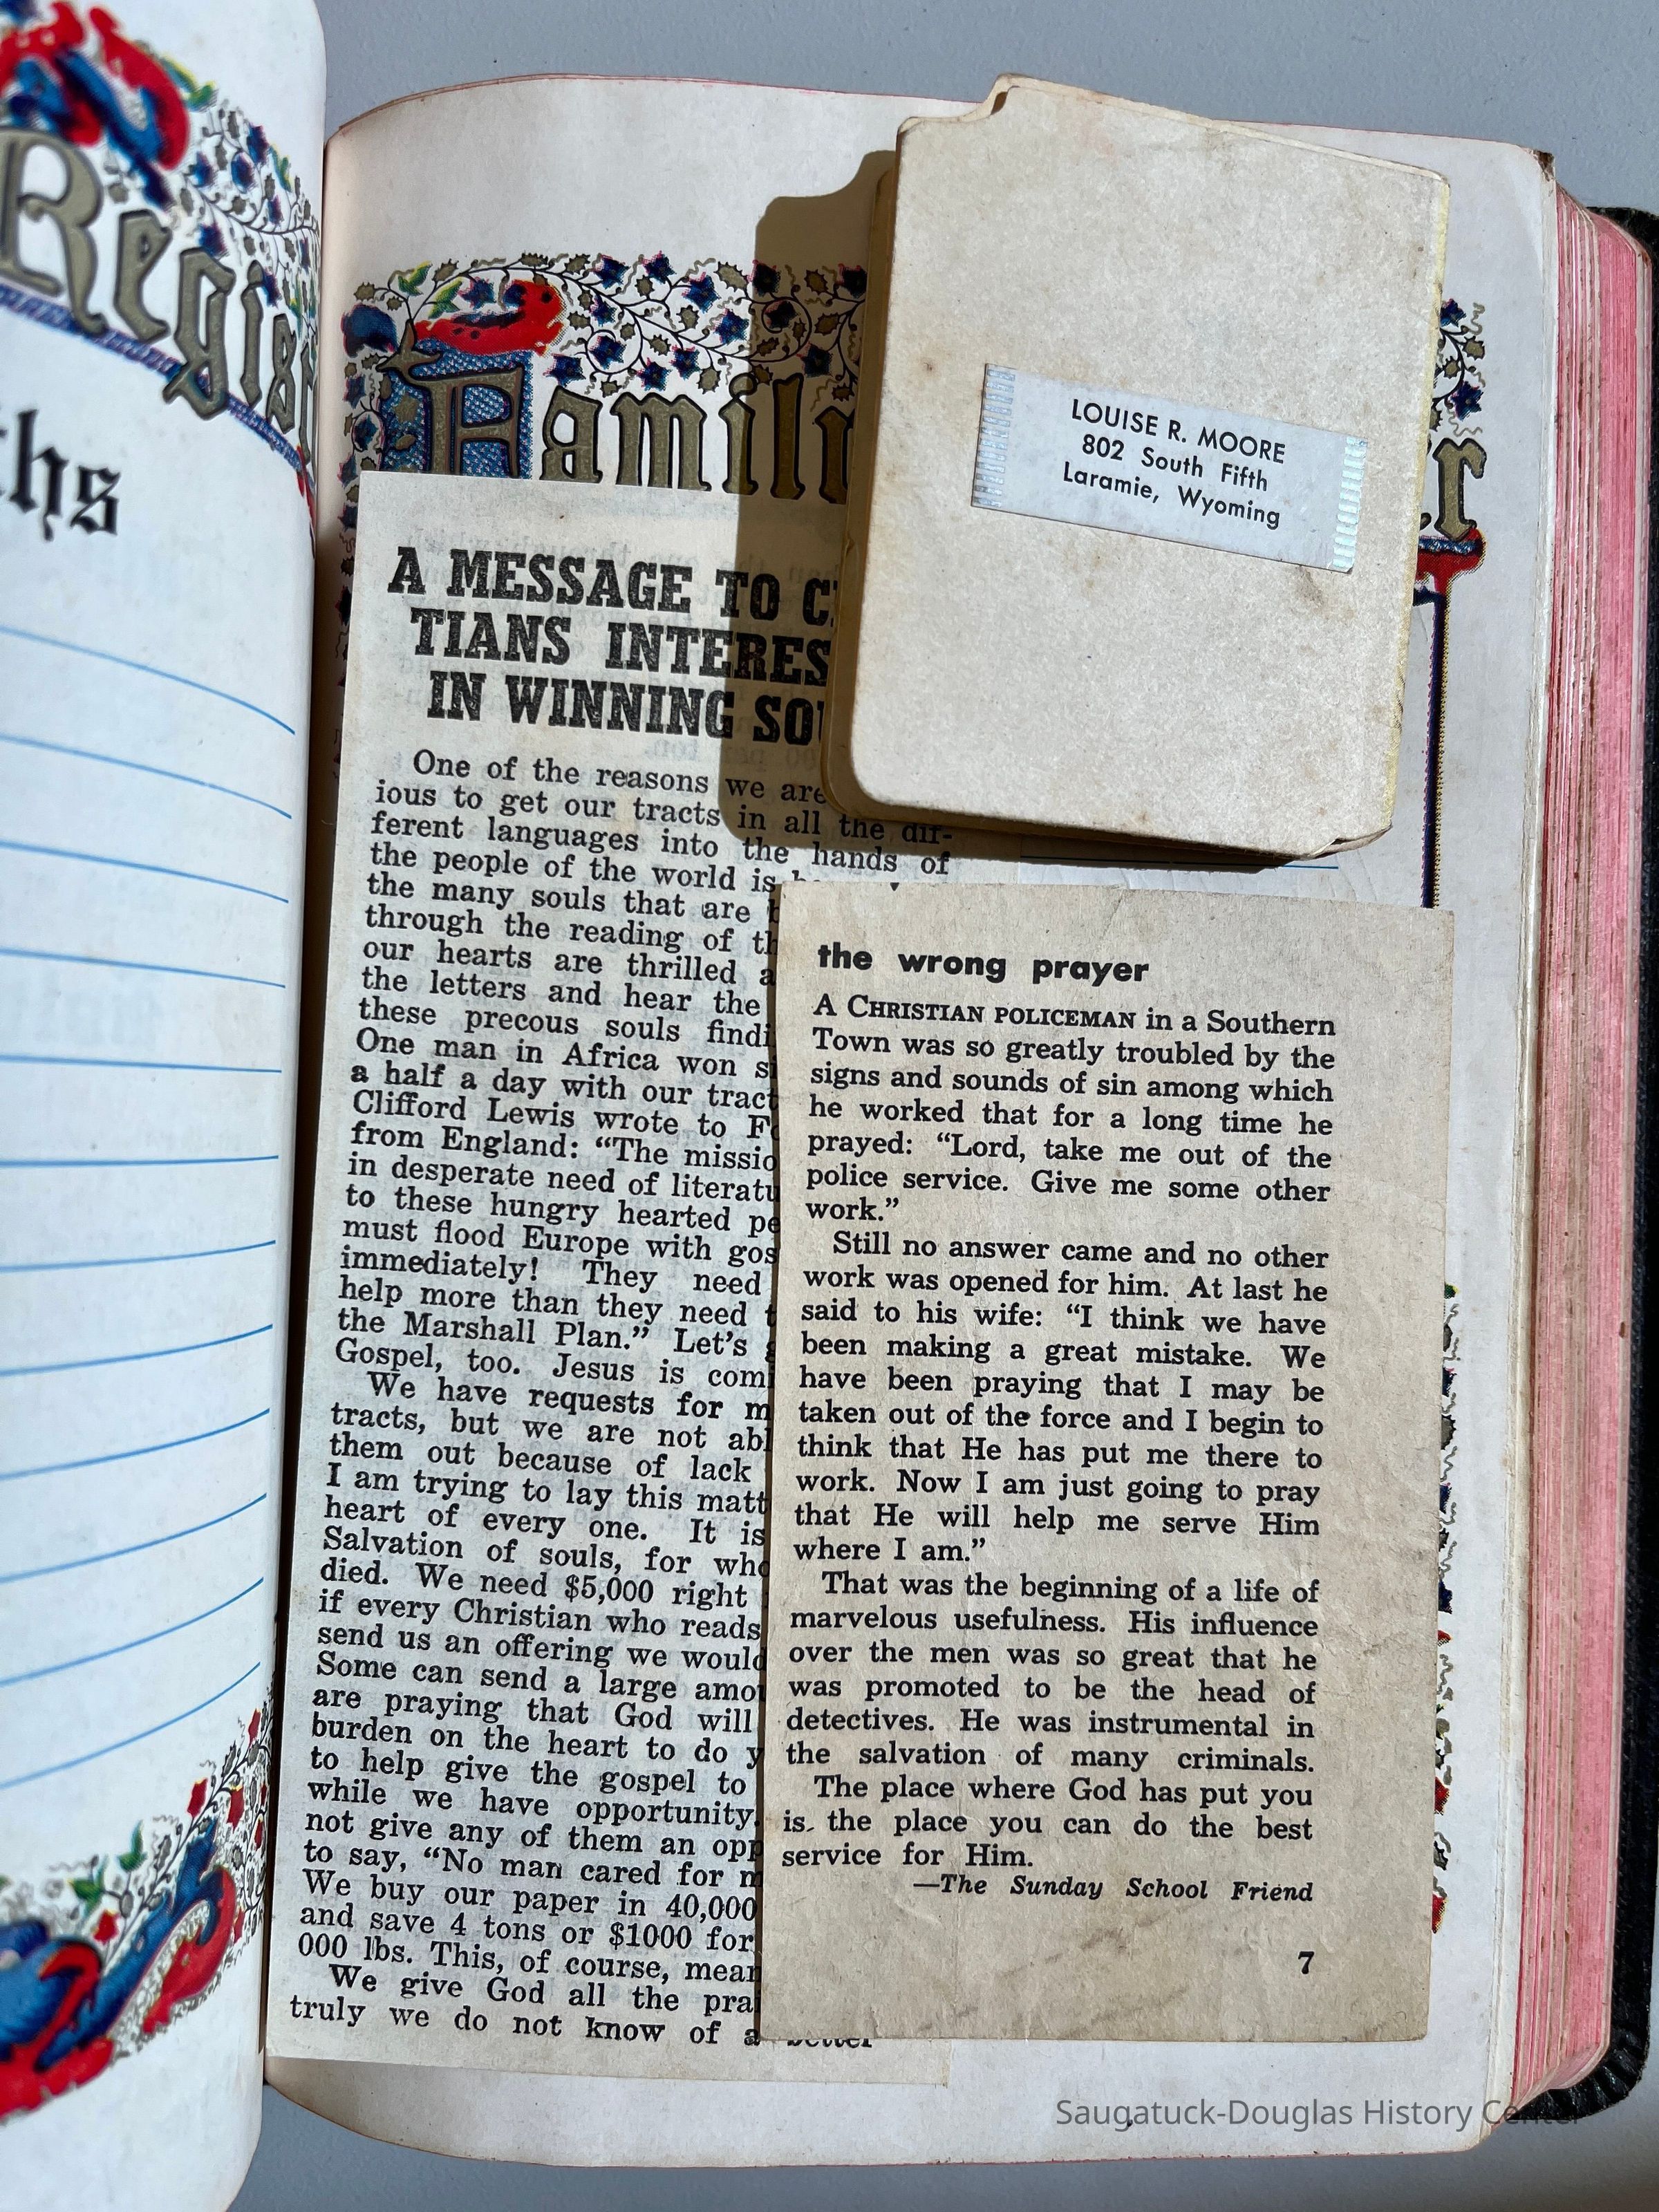 Regist
ths
Famil
er
LOUISE R. MOORE
802 South Fifth
Laramie, Wyoming
A MESSAGE TO C
TIANS INTERES
IN WINNING SOU
One of the reasons we are
ious to get our tracts in all the dif-
ferent languages into the hands of
the people of the world is
the many souls that are
through the reading of
our hearts are thrilled
the letters and hear the
these precous souls findi
One man in Africa won
a half a day with our tract
Clifford Lewis wrote to
from England: “The missio
in desperate need of literatu
to these hungry hearted
must flood Europe with gos
immediately! They need
help more than they need
the Marshall Plan.” Let’s
Gospel, too. Jesus is comi
We have requests for
tracts, but we are not abl
them out because of lack
I am trying to lay this matt
heart of every one. It is
Salvation of souls, for who
died. We need $5,000 right
if every Christian who reads
send us an offering we would
Some can send a large amo
are praying that God will
burden on the heart to do
to help give the gospel to
while we have opportunity.
not give any of them an opp
to say, “No man cared for
We buy our paper in 40,000
and save 4 tons or $1000 for
000 lbs. This, of course, mean
We give God all the prai
truly we do not know of a better
the wrong prayer
A CHRISTIAN POLICEMAN in a Southern
Town was so greatly troubled by the
signs and sounds of sin among which
he worked that for a long time he
prayed: “Lord, take me out of the
police service. Give me some other
work.”
Still no answer came and no other
work was opened for him. At last he
said to his wife: “I think we have
been making a great mistake. We
have been praying that I may be
taken out of the force and I begin to
think that He has put me there to
work. Now I am just going to pray
that He will help me serve Him
where I am.”
That was the beginning of a life of
marvelous usefulness. His influence
over the men was so great that he
was promoted to be the head of
detectives. He was instrumental in
the salvation of many criminals.
The place where God has put you
is the place you can do the best
service for Him.
—The Sunday School Friend
7
Saugatuck-Douglas History Center